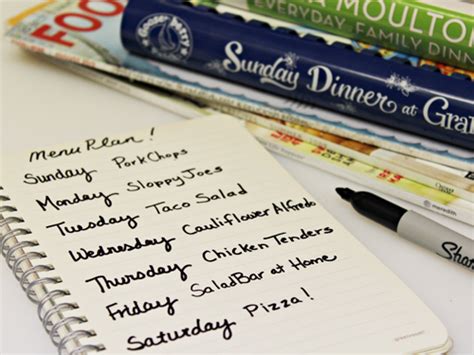 MOULTON
EVERYDAY FAMILY DINN
FOO
GOOSEBERRY
Sunday Dinner at Gra
Menu Plan!
Sunday Pork Chops
Monday Sloppy Joes
Tuesday Taco Salad
Wednesday Cauliflower Alfredo
Thursday Chicken Tenders
Friday Salad Bar at Home
Saturday Pizza!
Meredith
Shar